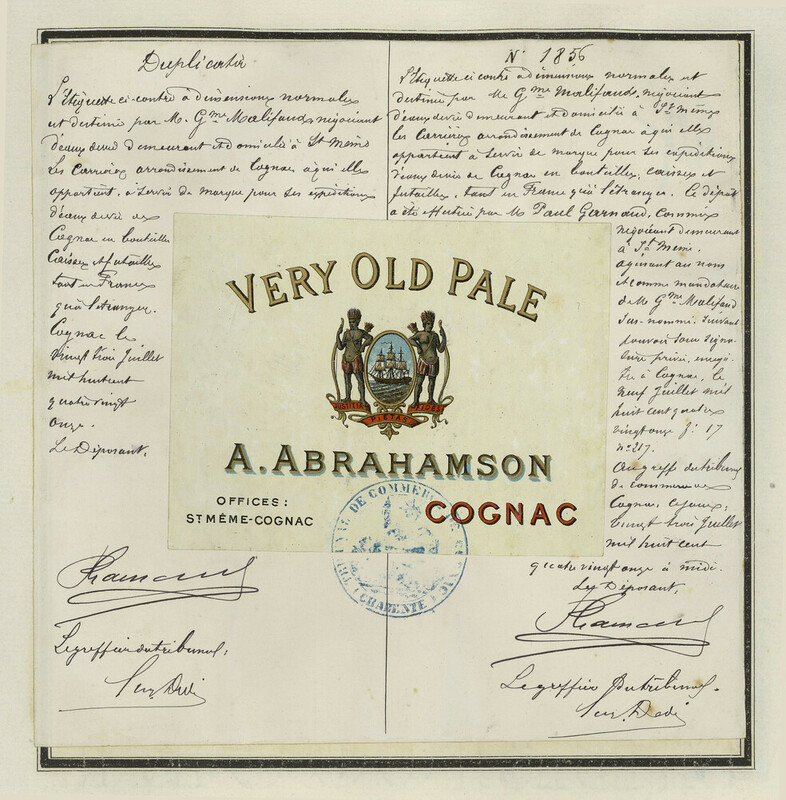 Duplicata
L'étiquette ci-contre à dimensions normales
et destinée par M. Gme Malifaud, négociant
d'eaux de vie demeurant et domicilié à St Meme
les Carrières arrondissement de Cognac à qui elle
appartient, à servir de marque pour ses expéditions
d'eaux de vie de
Cognac en bouteilles
Caisses et futailles
tant en France
qu'à l'étranger.
Cognac le
vingt trois Juillet
mil huit cent
quatre vingt
onze.
Le Déposant,
Le greffier du tribunal,
No 1856
L'étiquette ci contre à dimensions normales et
destinée par M. Gme Malifaud, négociant
d'eaux de vie demeurant et domicilié à St Même
les Carrières arrondissement de Cognac à qui elle
appartient à servir de marque pour ses expéditions
d'eaux de vie de Cognac en bouteilles, caisses et
futailles, tant en France qu'à l'étranger. Le dépôt
a été effectué par M. Paul Garnaud, commis
négociant demeurant
à St Meme.
agissant au nom
et comme mandataire
de M. Gme Malifaud
sus-nommé, suivant
pouvoir sous signa-
ture privée, enregis-
tré à Cognac, le
neuf Juillet mil
huit cent quatre
vingt onze fo 17
no 217.
Au greffe du tribunal
de commerce de
Cognac, ce jour,
vingt trois Juillet
mil huit cent
quatre vingt onze à midi.
Le Déposant,
Le greffier du tribunal.
VERY OLD PALE
JUSTITIA PIETAS FIDES
A. ABRAHAMSON
OFFICES:
ST MÊME-COGNAC
COGNAC
TRIBUNAL DE COMMERCE DE COGNAC
(CHARENTE)